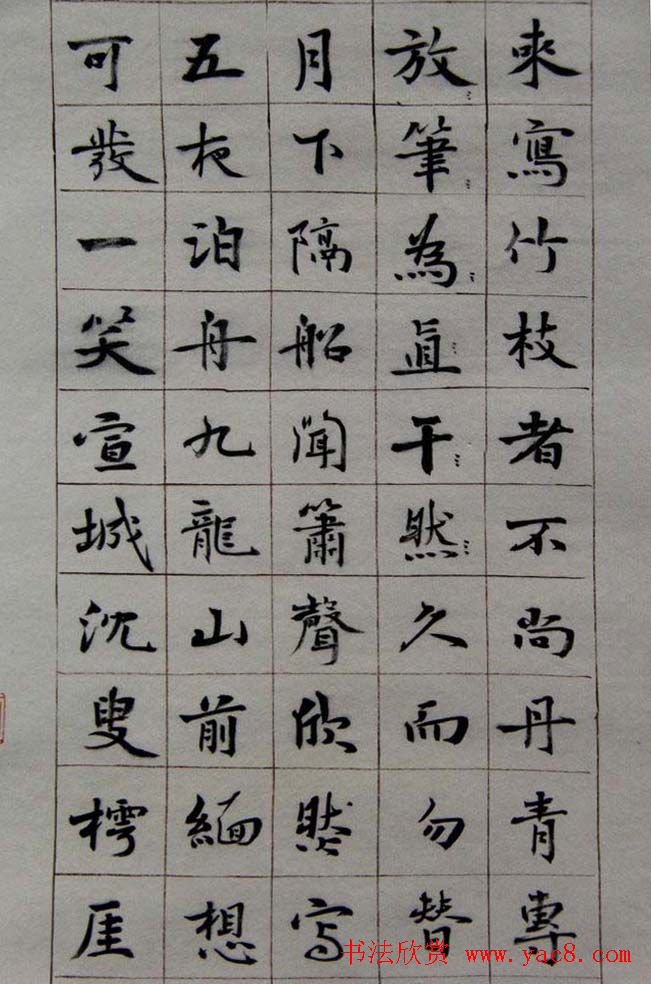 來寫竹枝者不尚丹青專
放筆為直干然久而勿替
月下隔船聞簫聲欣然写
五夜泊舟九龍山前緬想
可發一笑宣城沈叟樗厓
书法欣赏 www.yac8.com